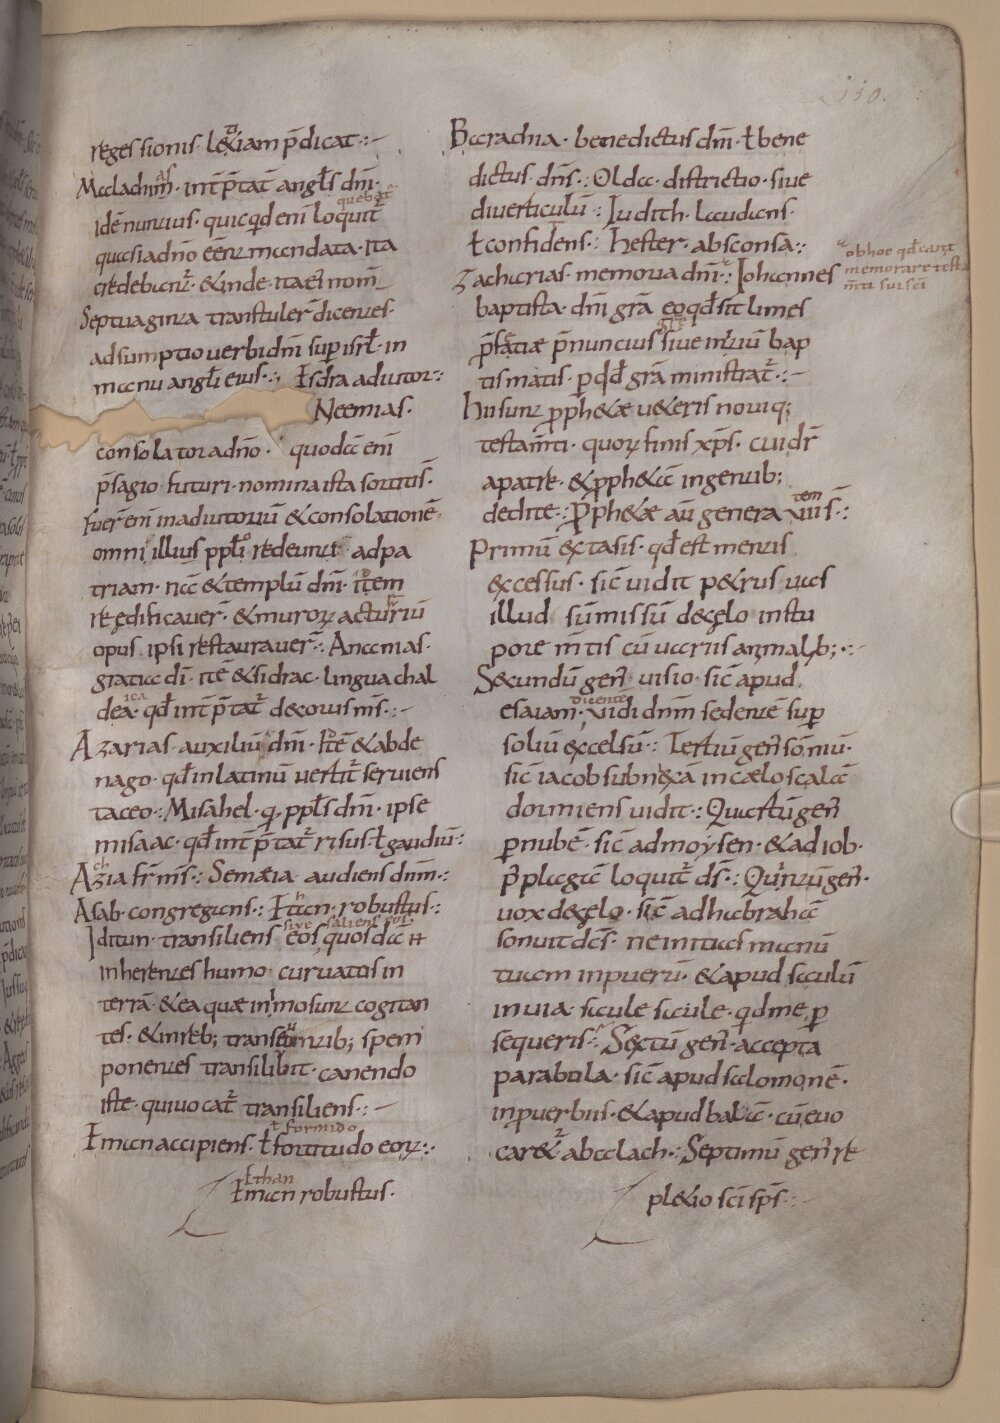 110.
regessionis. l&iam p̄dicat :~
Malachim. int̄p̄tat̄ angl̄s dn̄i.
idē nunius. quicqd̄ enī loquit̄
quebat̄
quasi adn̄o eēnt mandata. ita
credebant̄. & inde. ita ei nom̄
Septuaginta transtuler̄ dicentes.
adsumptio uerbi dn̄i sup isrł. in
manu angłi eius :. Esdra adiutor :.
Neemias.
consolator adn̄o. quodā enī
p̄sagio futuri. nomina ista sortitis̄.
fuer̄ enī inadiutoriū & consolationē
omni illius ppłi redeunt adpa
triam. nā & templū dn̄i. itēm
reędificauer̄. & muroꝝ acturiū
opus ipsi restaurauer̄ :. Annanias.
gratia dī. itē & sidrac. lingua chal
dea. qd̄ int̄p̄tat̄ decorus m̄s :~
ica
Azarias. auxiliū dn̄i. itē & abde
nago. qd̄ inlatinū uertit̄ seruiens
taceo :. Misahel. q, ppłs dn̄i. ipse
misaac. qd̄ int̄p̄tat̄ risus. ł gaudiū :.
Azia fr̄ m̄s :. Semæia. audiens dn̄m :.
ch
Asab. congregans :. Etan. robustus :.
siue saliens eos.
Iditun. transiliens eos quos dā
inherentes humo curuatus in
terrā. & ea quæ inimo sunt cogitan
tes. & inreb; transeuntib; spem
ponentes transilibit. canendo
iste. quiuocat̄ transiliens :~
ł formido
Eman accipiens. ł fortitudo eoꝝ :.
Ethan
Eman robustus.
Barachia. benedictus dn̄i. ł bene
dictus dn̄s :. Olda. districtio. siue
diuerticulū :. Iudith. laudans.
ł confidens :. Hester. absconsa :.
Zacharias. memoria dn̄i :. Iohannes
ob hoc qd̄ cant
memorare testa
m̄ti sui sc̄i
baptista. dn̄i gr̄a eo qd̄ sit limes
p̄fatiæ p̄nuncius siue intriū bap
tismatis. p qd̄ gr̄am ministrat̄ :~
Hii sunt pp̄h&æ u&eris nouiq;
testam̄ti. quoꝝ finis xp̄s. cui dr̄
apatre. & pph&ā ingentib;
dedi te :. Pph&æ aū genera VII s̄ :.
tem
Primū extasis. qd̄ est mentis
excessus. sic̄ uidit p&rus uas
illud sūmissū decęlo instu
pore m̄tis cū uariis animalib; :.
Secundū gen̄ uisio. sic̄ apud
esaiam. uidi dn̄m sedentē sup
dicentē
soliū excelsū :. Tertiū gen̄ somniū.
sic̄ iacob subnixā in cælo scalā
dormiens uidit :. Quartū gen̄
p nubē. sic̄ admoysen. & adiob.
p̄ plagā loquit̄ ds̄ :. Quintū gen̄.
uox decęlo. sic̄ adhabrahā
sonuit dc̄s. ne initias manū
tuam inpuerū. & apud saulū
inuia. saule saule. qd me p
sequeris :. Sextū gen̄. accepta
parabula. sic̄ apud salomonē.
inpuerbiis. & apud balaā. cū euo
car&̄ abalach :. Septimū gen̄ re
pl&io sc̄i sp̄s :.